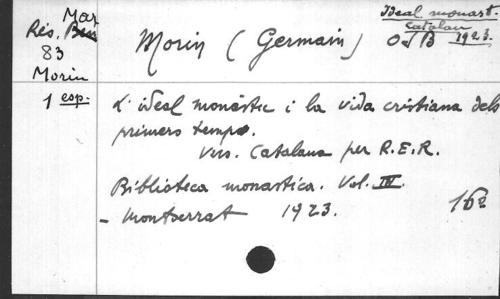 Mar
Rés.
83
Morin
1 esp.
Morin (Germain)
Ideal monast.
Catalan
O d B 1923.
L'ideal monàstic i la vida cristiana dels
primers temps.
Vers. Catalana per R.E.R.
Biblioteca monastica. Vol. III.
- Montserrat 1923.